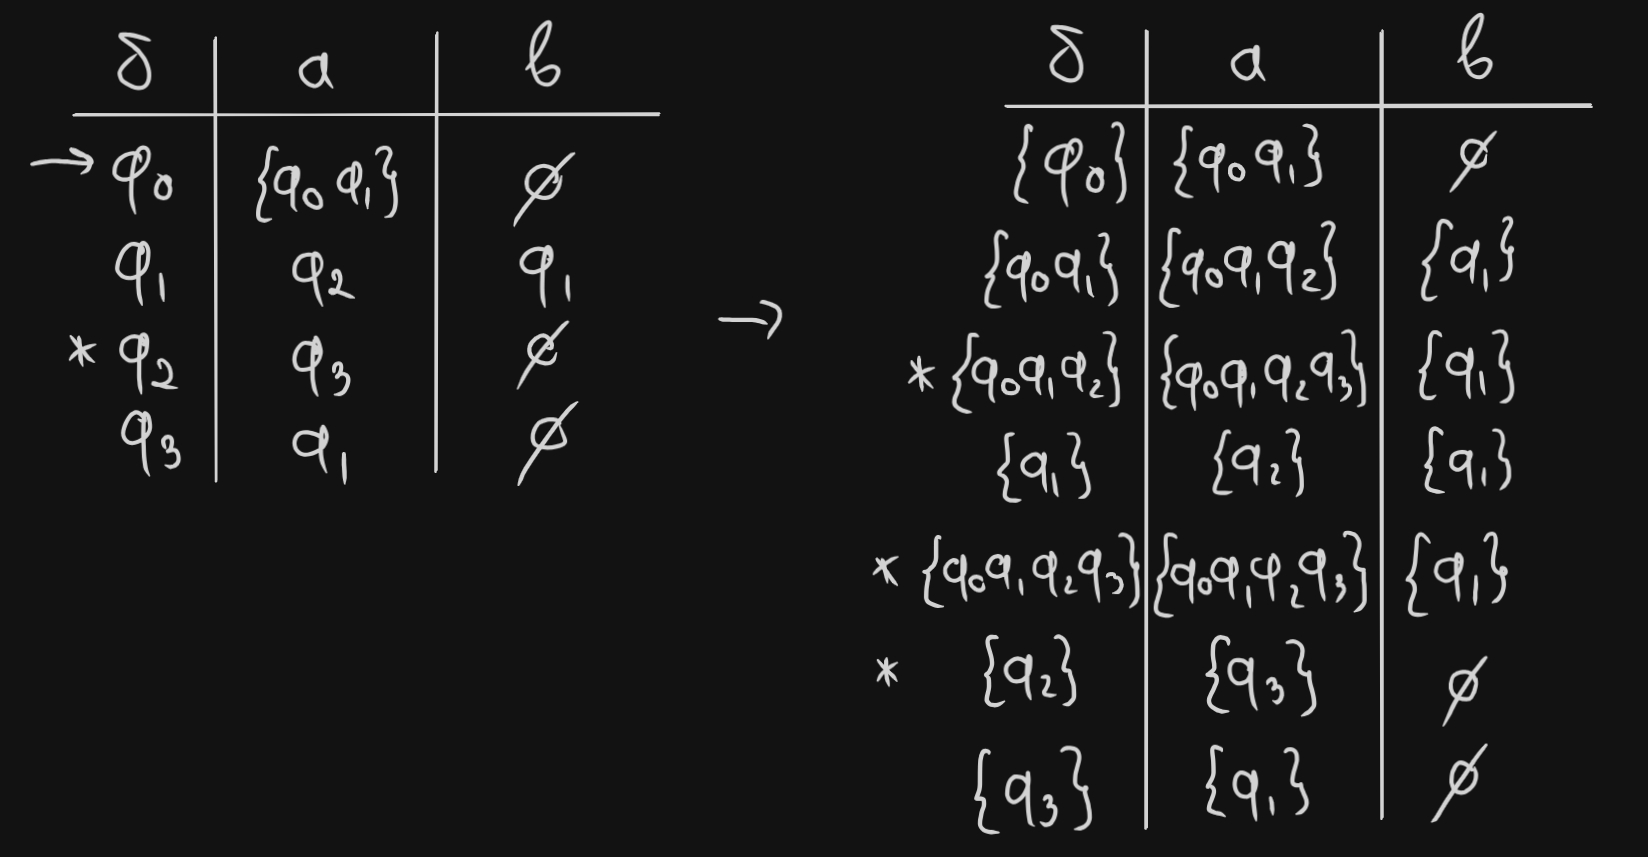 δ a b
→ q₀ {q₀ q₁} ∅
q₁ q₂ q₁
* q₂ q₃ ∅
q₃ q₁ ∅
→
δ a b
{q₀} {q₀ q₁} ∅
{q₀ q₁} {q₀ q₁ q₂} {q₁}
* {q₀ q₁ q₂} {q₀ q₁ q₂ q₃} {q₁}
{q₁} {q₂} {q₁}
* {q₀ q₁ q₂ q₃} {q₀ q₁ q₂ q₃} {q₁}
* {q₂} {q₃} ∅
{q₃} {q₁} ∅